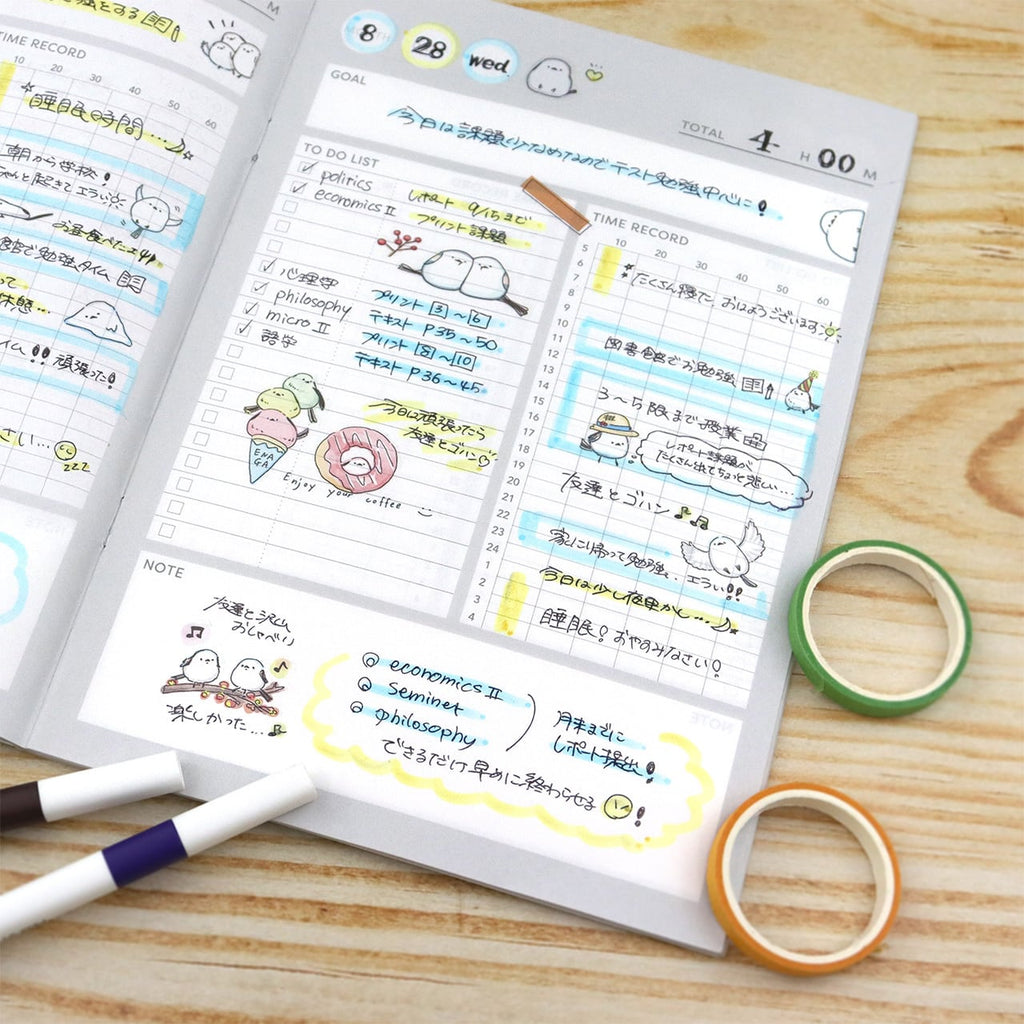 強をする
M
TIME RECORD
10 20 30 40 50 60
睡眠時間…
朝から学校!
ちゃんと起きてエライ
お昼食べたユタ
で勉強タイム
って
休憩…
イム!! 頑張った!
さい…
zzz
8 28 wed.
GOAL
今日は課題少なめなのでテスト勉強中心に!
TOTAL 4 H 00 M
TO DO LIST
politics
economics II
レポート 9/15まで
プリント課題
心理学
philosophy
micro II
語学
プリント 3～6
テキスト P35～50
プリント 8～10
テキスト P36～45
今日は頑張ったら
友達とゴハン
ENAGA
Enjoy your coffee
TIME RECORD
10 20 30 40 50 60
5
6
7
8
9
10
11
12
13
14
15
16
17
18
19
20
21
22
23
24
1
2
3
4
たくさん寝た おはようございます
図書館でお勉強
3～5限まで授業
レポート課題が
たくさん出てちょっと悲しい…
友達とゴハン
家に帰って勉強… エライ!!
今日は少し夜更かし…
睡眠! おやすみなさい!
NOTE
友達と沢山
おしゃべり
楽しかった…
economics II
Seminer
philosophy
月末までに
レポート提出!
できるだけ早めに終わらせる!